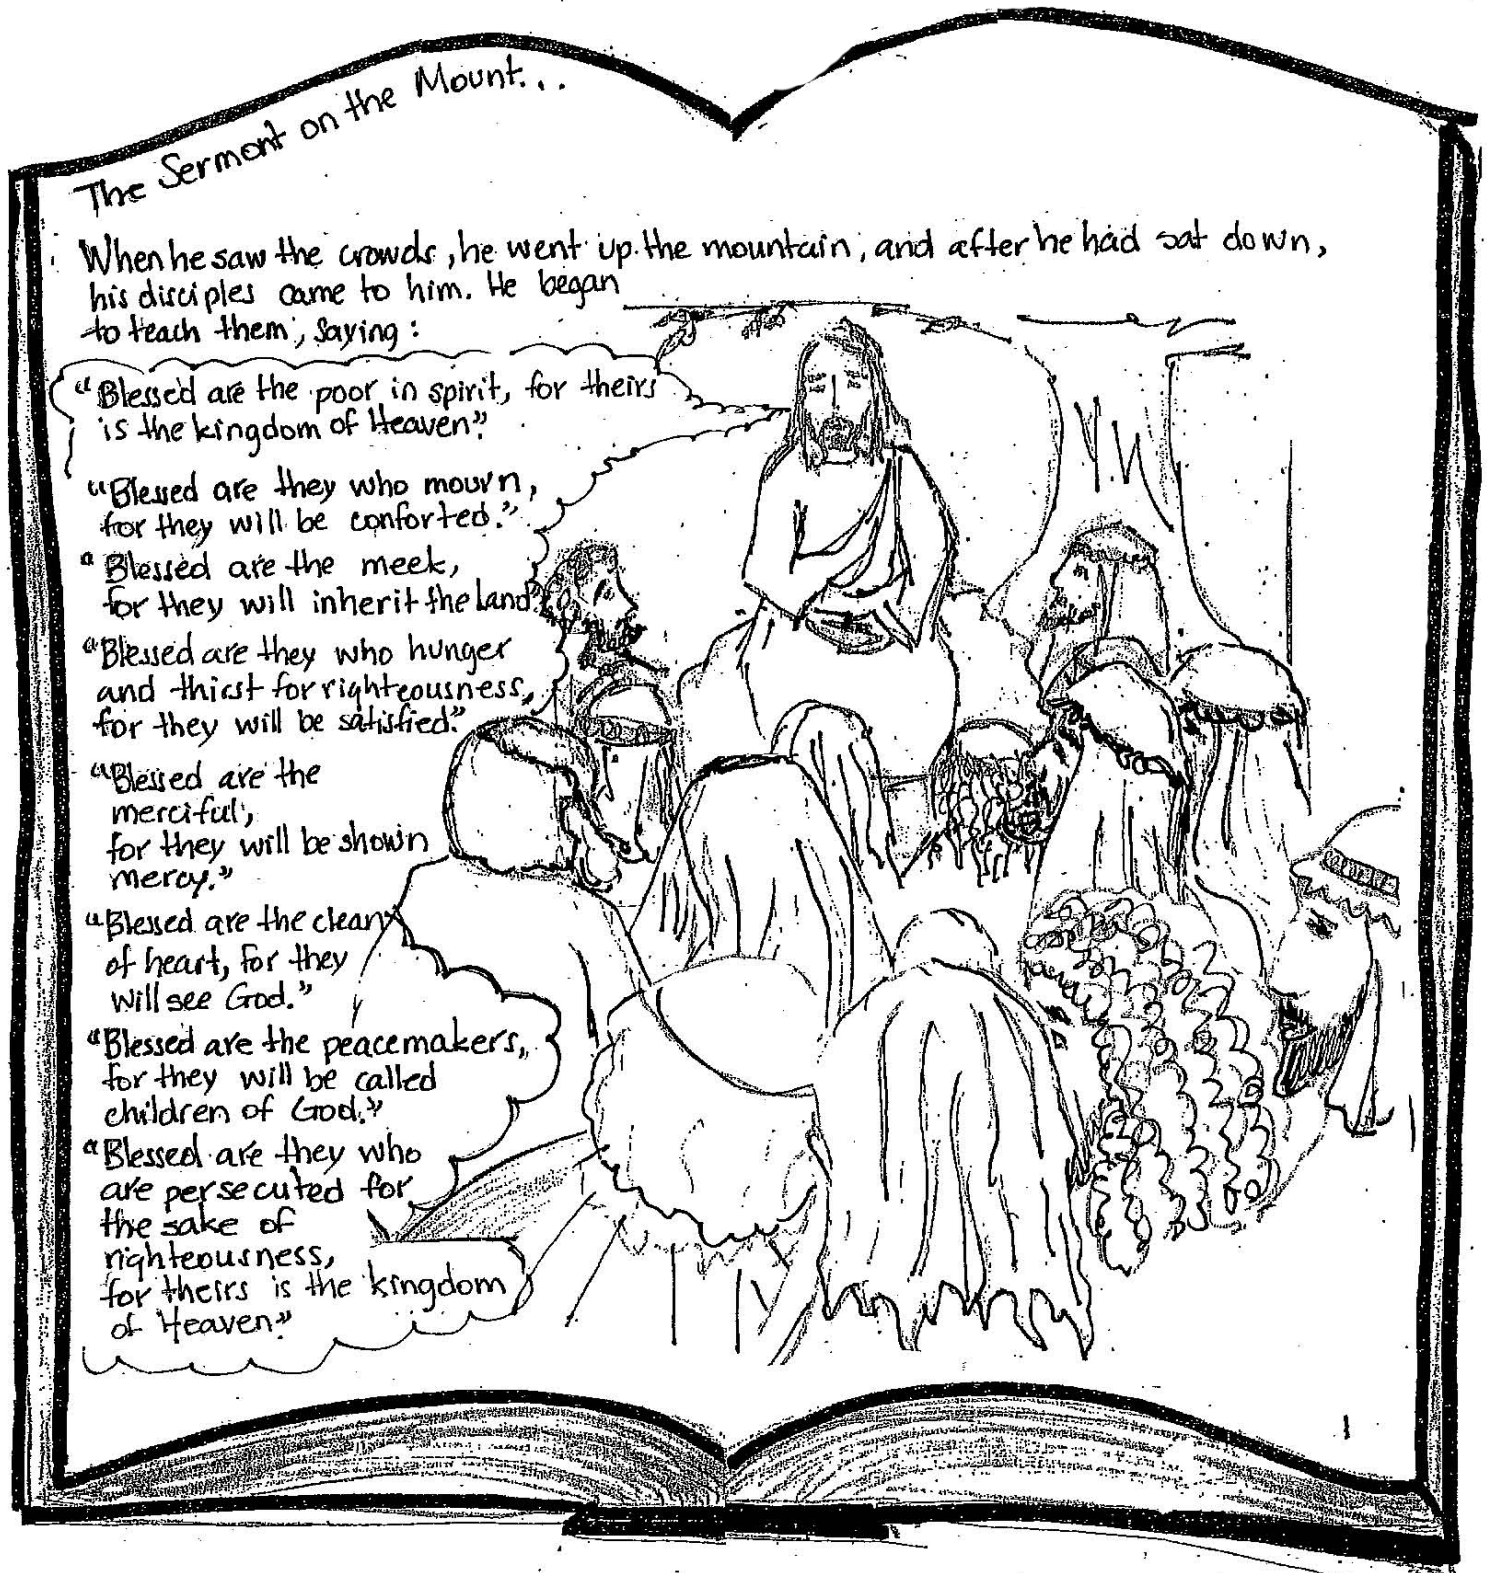 The Sermont on the Mount...
When he saw the crowds, he went up the mountain, and after he had sat down,
his disciples came to him. He began
to teach them, saying:
"Blessed are the poor in spirit, for theirs
is the kingdom of Heaven."
"Blessed are they who mourn,
for they will be conforted."
"Blessed are the meek,
for they will inherit the land"
"Blessed are they who hunger
and thirst for righteousness,
for they will be satisfied."
"Blessed are the
merciful,
for they will be shown
mercy."
"Blessed are the clean
of heart, for they
will see God."
"Blessed are the peacemakers,
for they will be called
children of God."
"Blessed are they who
are persecuted for
the sake of
righteousness,
for theirs is the kingdom
of Heaven."